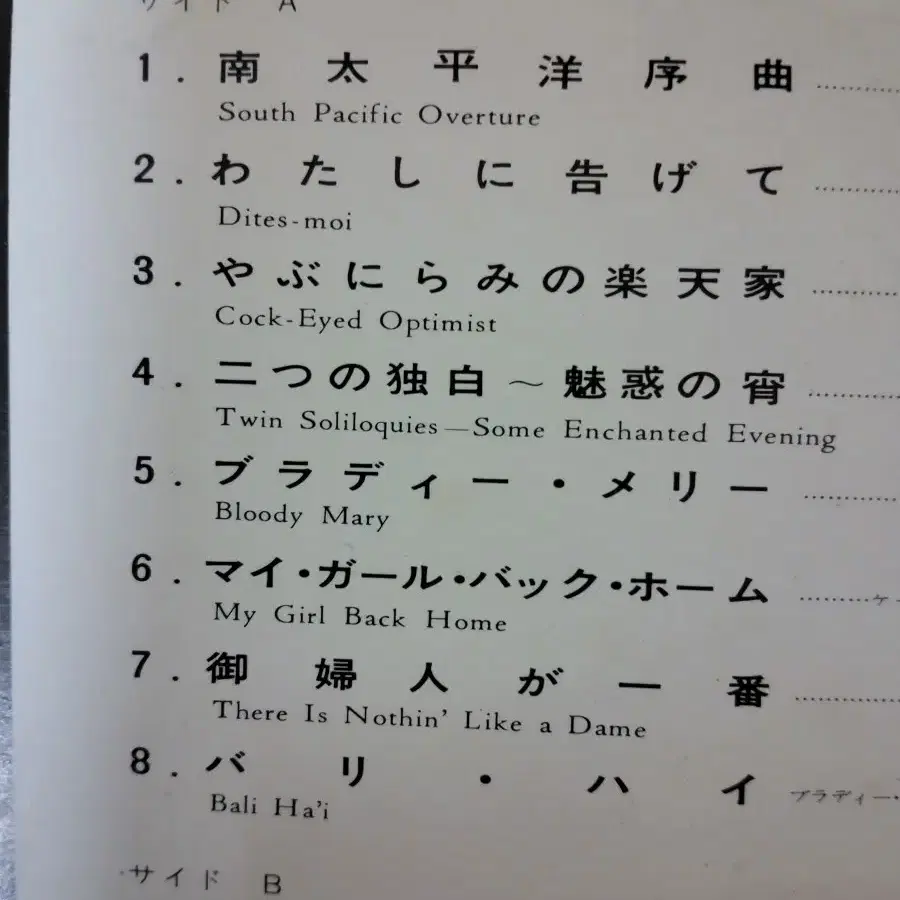 サイド A
1. 南太平洋序曲
South Pacific Overture
2. わたしに告げて
Dites-moi
3. やぶにらみの楽天家
Cock-Eyed Optimist
4. 二つの独白～魅惑の宵
Twin Soliloquies—Some Enchanted Evening
5. ブラディー・メリー
Bloody Mary
6. マイ・ガール・バック・ホーム ケー
My Girl Back Home
7. 御婦人が一番
There Is Nothin' Like a Dame
8. バリ・ハイ ブラディー・
Bali Ha'i
サイド B